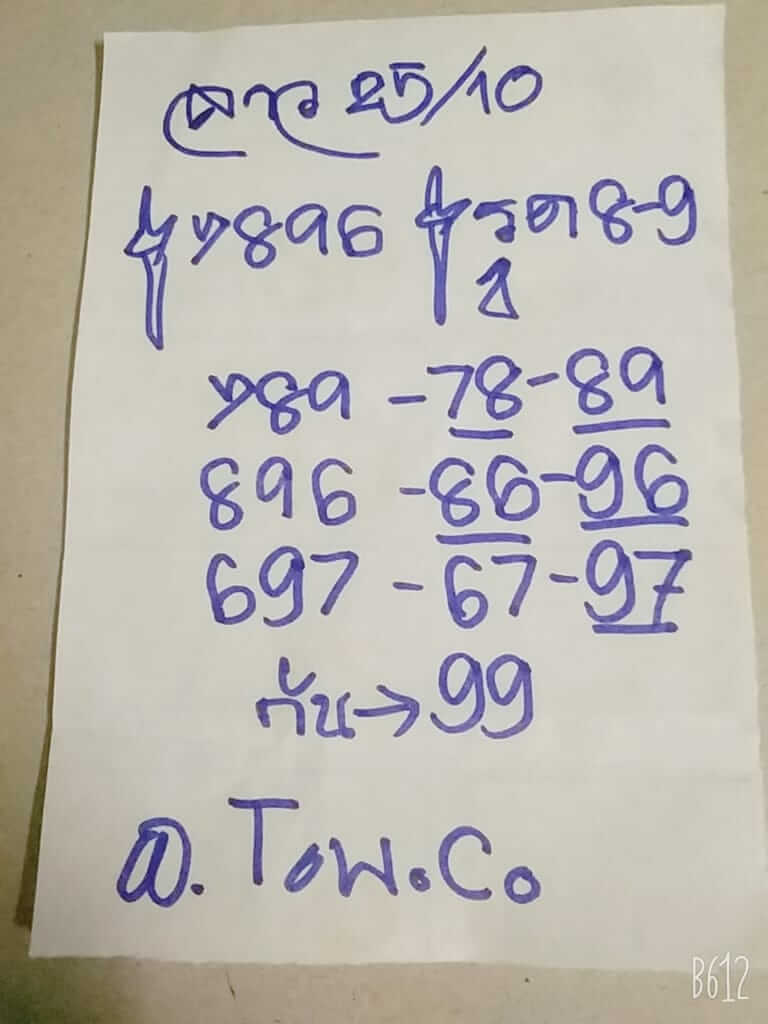 ลาว 25/10
7896 รูด 8-9
789 -78-89
896 -86-96
697 -67-97
กัน→99
@. Tow.Co
B612